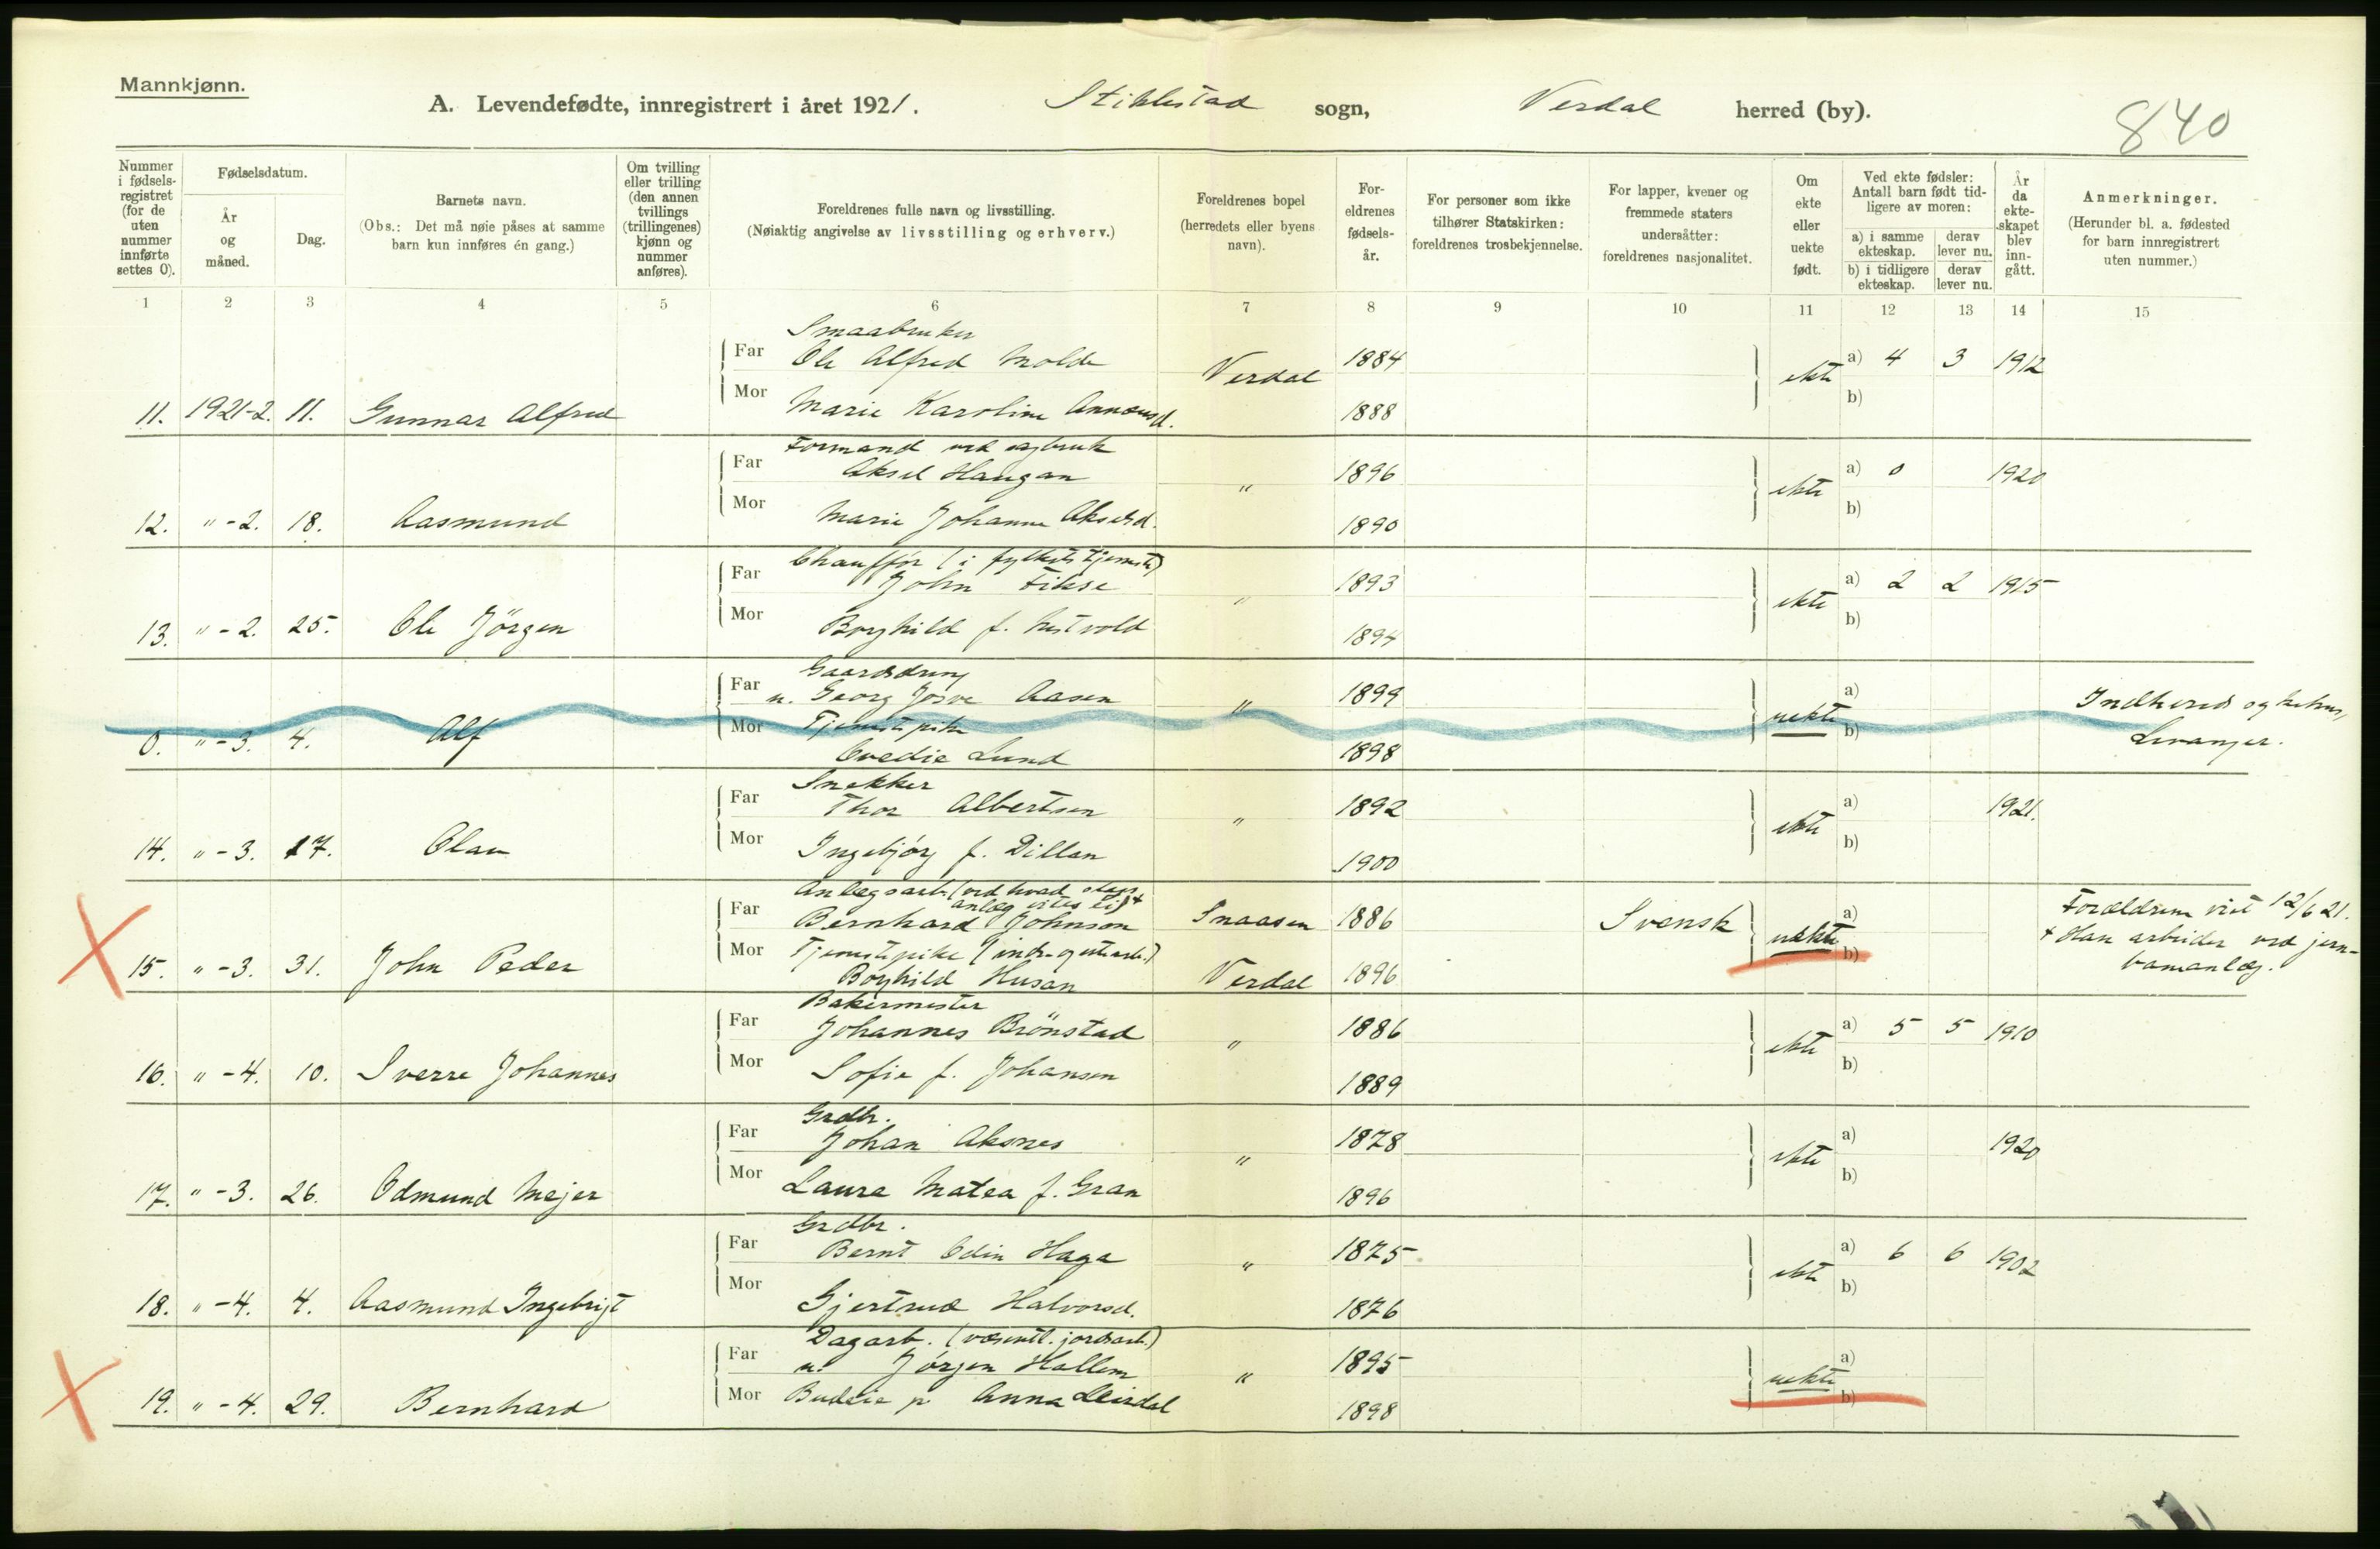 Mannkjønn.
A. Levendefødte, innregistrert i året 1921. Stiklestad sogn, Verdal herred (by). 840
Nummer i fødselsregistret (for de uten nummer innførte settes 0).
Fødselsdatum.
År og måned.
Dag.
Barnets navn.
(Obs.: Det må nøie påses at samme barn kun innføres én gang.)
Om tvilling eller trilling (den annen tvillings (trillingenes) kjønn og nummer anføres).
Foreldrenes fulle navn og livsstilling.
(Nøiaktig angivelse av livsstilling og erhverv.)
Foreldrenes bopel (herredets eller byens navn).
Foreldrenes fødselsår.
For personer som ikke tilhører Statskirken: foreldrenes trosbekjennelse.
For lapper, kvener og fremmede staters undersåtter: foreldrenes nasjonalitet.
Om ekte eller uekte født.
Ved ekte fødsler: Antall barn født tidligere av moren:
a) i samme ekteskap. derav lever nu.
b) i tidligere ekteskap. derav lever nu.
År da ekteskapet blev inngått.
Anmerkninger.
(Herunder bl. a. fødested for barn innregistrert uten nummer.)
1 2 3 4 5 6 7 8 9 10 11 12 13 14 15
Smaabruker
Far Ole Alfred Molde Verdal 1884 ekte a) 4 3 1912
11. 1921-2. 11. Gunnar Alfred Mor Marie Karoline 1888 b)
Formand ved sagbruk
Far Aksel Haugan " 1896 ekte a) 0 1920
12. "-2. 18. Aasmund Mor Marie Johanne Akselsd. 1890 b)
Chauffør (i fylkets tjeneste)
Far John Fikse " 1893 ekte a) 2 2 1915
13. "-2. 25. Ole Jörgen Mor Borghild f. Nestvold 1894 b)
Gaardsdreng
Far u. Georg Aasen " 1899 uekte a) Indhered sykehus,
Mor Tjenestepike b) Levanger.
0. "-3. 4. Alf Ovedie Lund 1898
Snekker
Far Thor Albertsen " 1892 ekte a) 1921.
14. "-3. 17. Olav Mor Ingebjörg f. Dillan 1900 b)
Anlægsarb. (ved hvad slags anlæg vites ei) +
Far Bernhard Johnson Snaasen 1886 Svensk uekte a) Forældrene viet 12/6 21.
Mor Tjenestepike (indr- og utearb.) b) + Han arbeider ved jern-
15. "-3. 31. John Peder Borghild Husan Verdal 1896 baneanlæg.
Bakermester
Far Johannes Brönstad " 1886 ekte a) 5 5 1910
16. "-4. 10. Sverre Johannes Mor Sofie f. Johansen 1889 b)
Grdbr.
Far Johan Aksnes " 1878 ekte a) 1920
17. "-3. 26. Odmund Mejer Mor Laura Matea f. Gran 1896 b)
Grdbr.
Far Bernt Odin Haga " 1875 ekte a) 6 6 1902
18. "-4. 4. Aasmund Ingebrigt Mor Gjertrud Halvorsd. 1876 b)
Dagarb. (væsentl. jordarb.)
Far u. Jörgen Hallem " 1895 uekte a)
19. "-4. 29. Bernhard Mor Budeie p. Anna Leirdal 1898 b)